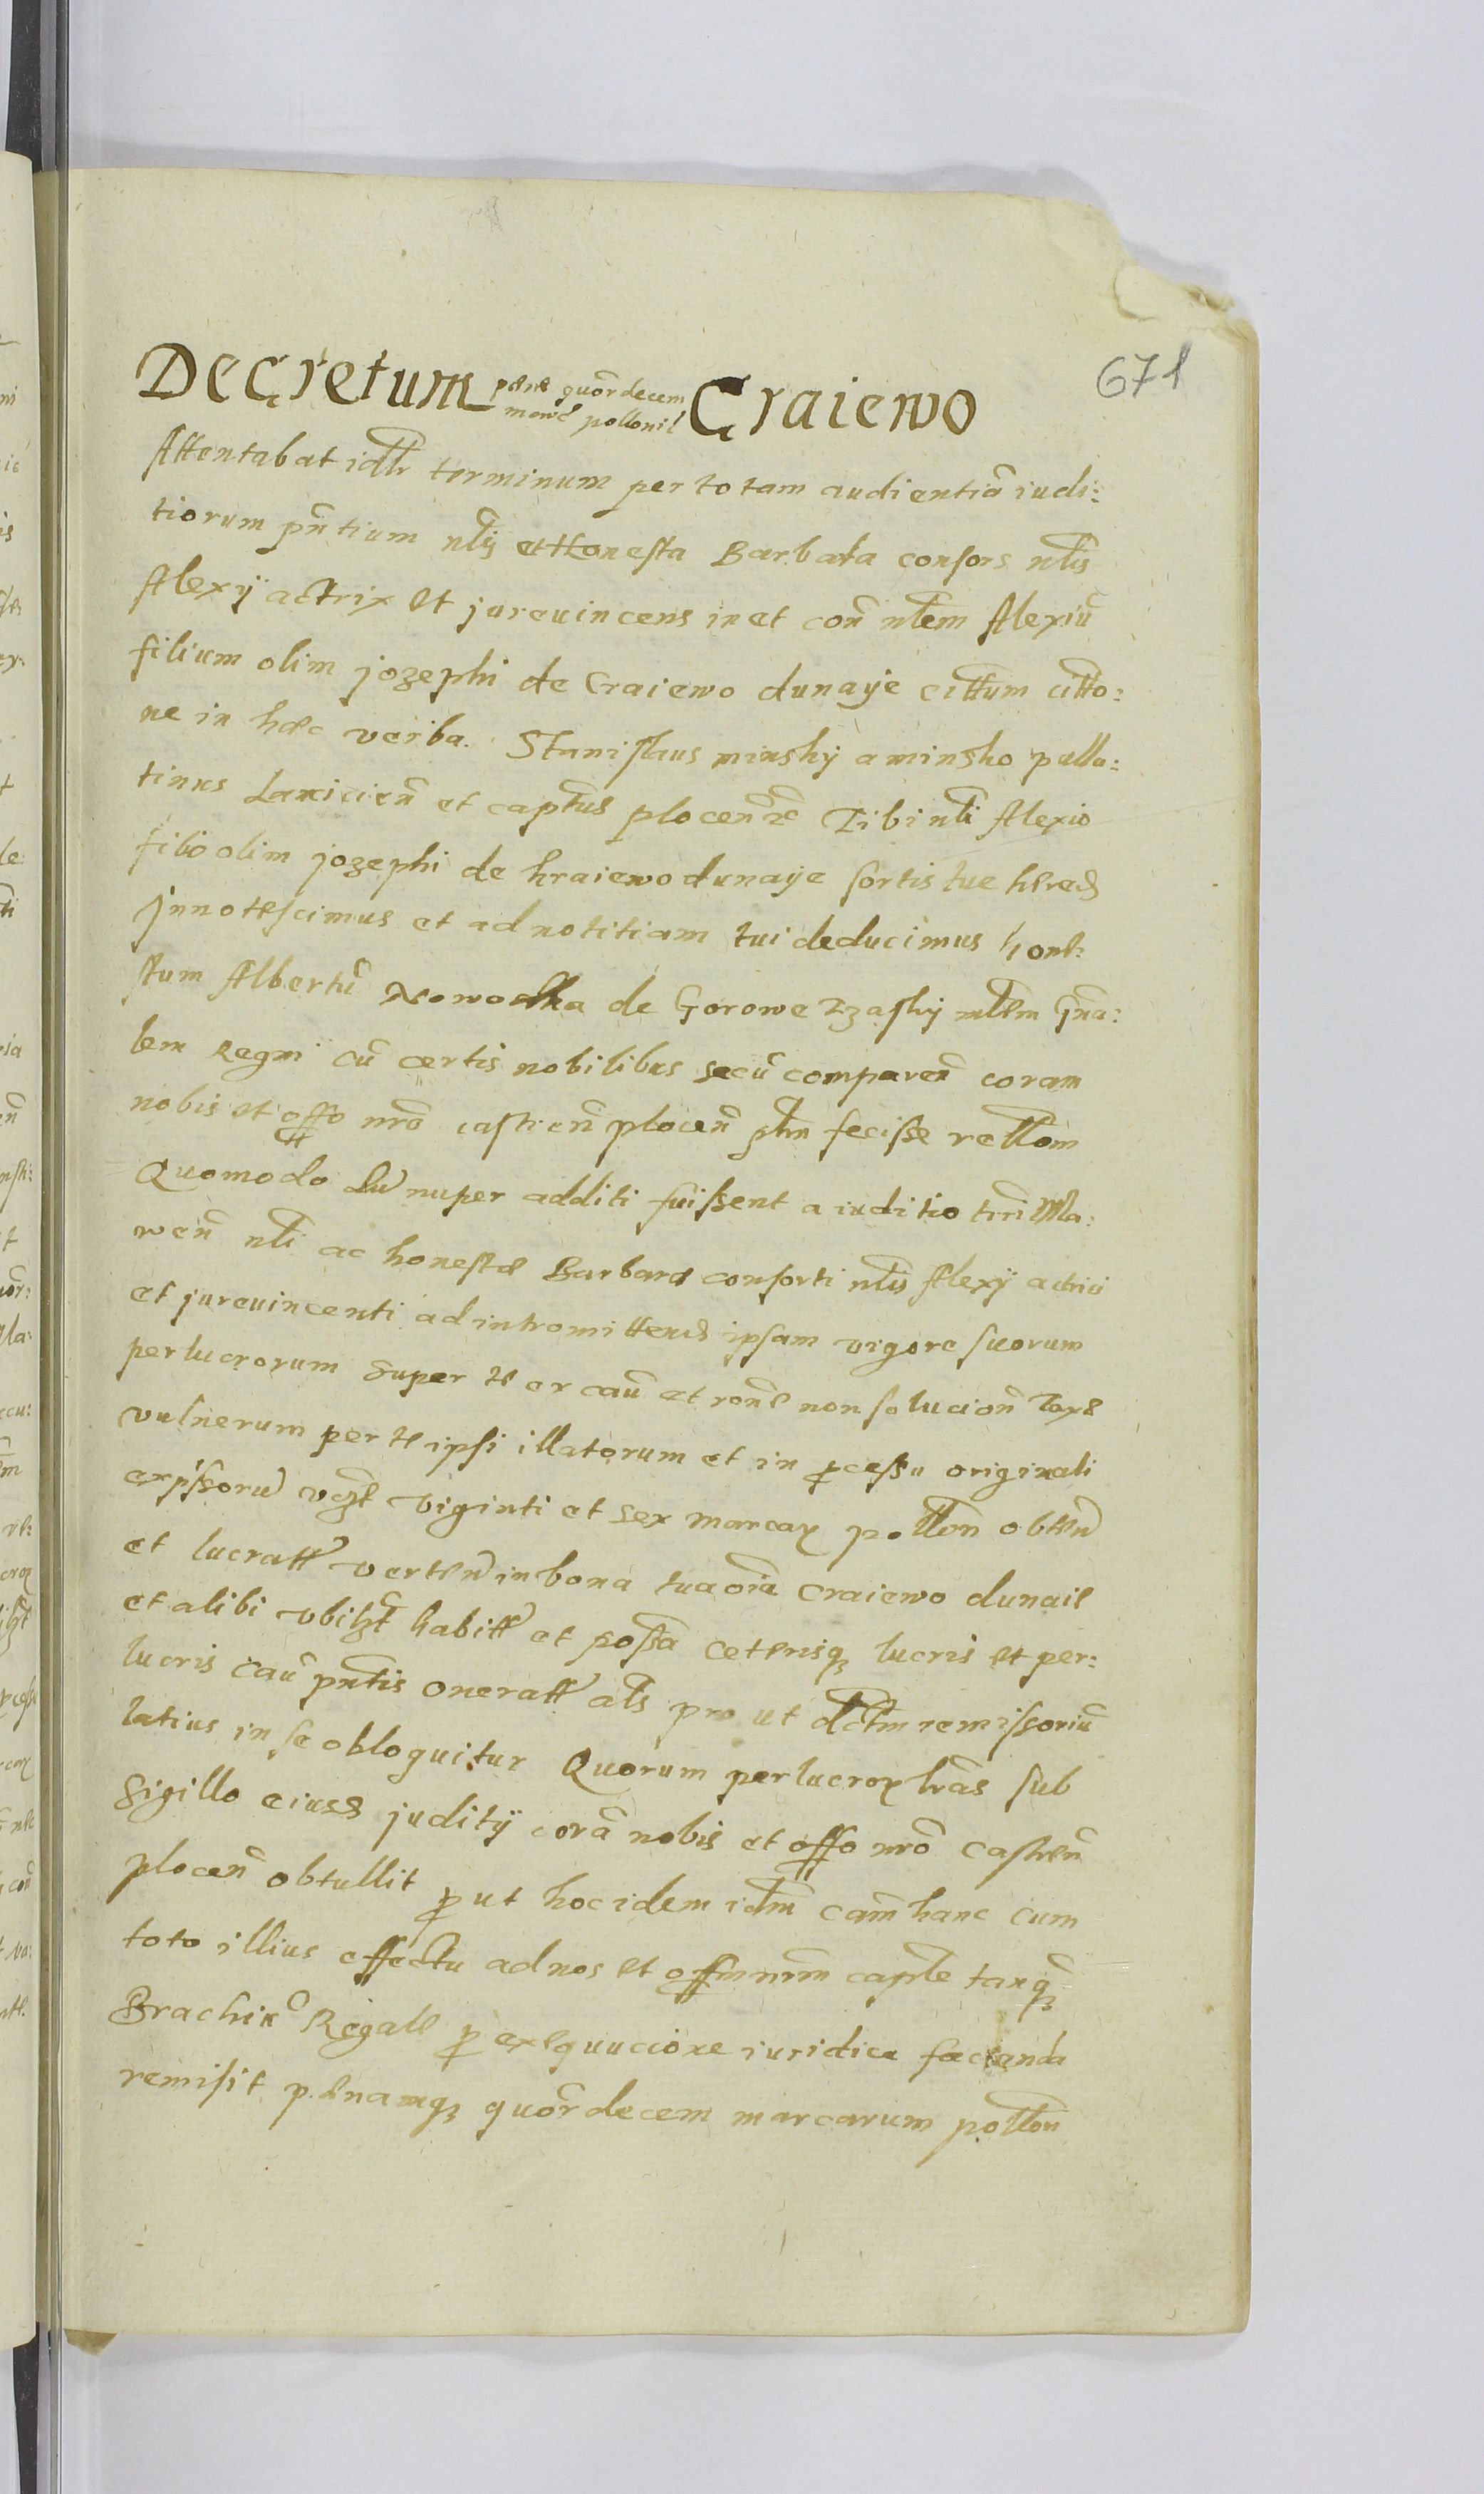 671
Decretum pene quõrdecem Craiewo
marc̃ pollonił
Attentabat idłr terminum per totam audientiã iudi:
tiorum pñtium nłis et Honesta Barbara consors nłis
Alexÿ actrix et jureuincens in et coñ nłem Alexiũ
filium olim jozephi de Craiewo dunaÿe cittum citto:
ne in hæc verba. Stanislaus minsky a minsko palla:
tinus Lancicieñ et captũs ploceñ ꝛc Tibi nłi Alexio
filio olim jozephi de kraiewo dunaÿe sortis tue hered
Innotescimus et ad notitiam tui deducimus hone:
stum Albertũ Nowoskka de Gorowe nłem Gña:
lem Regni cũ certis nobilibus secũ compareñ coram
nobis et offo nrõ castreñ ploceñ fecisse rełłom
Quomodo dũ nuper additi fuissent a iuditio trri Ma:
weñ nłi ac honestæ Barbaræ consorti nłis Alexÿ actrici
et jureuincenti ad intromittend ipsam vigore suorum
perlucrorum super te ex caũ et rone non solucioñ taxe
vulnerum per te ipsi illatorum et in ꝓcessu originali
expissorũ vczt viginti et sex marcaꝝ połłoñ obteñ
et lucratt verteñ in bona tua oĩa Craiewo dunaie
et alibi vbilzt habitt et possa ceterisqꝫ lucris et per:
lucris caũ pñtis oneratt als pro ut dctm remissoriũ
latius in se obloquitur Quorum perlucroꝝ lrãs sub
Sigillo eiusd juditÿ corã nobis et offo nrõ castreñ
ploceñ obtullit ꝓ ut hoc idem idm̃ cam̃ hanc cum
toto illius effectu ad nos et offm nrm̃ caple tanqꝫ
Brachiũ Regale ꝓ exequucione iuridica facienda
remisit penamqꝫ quõrdecem marcarum połłon